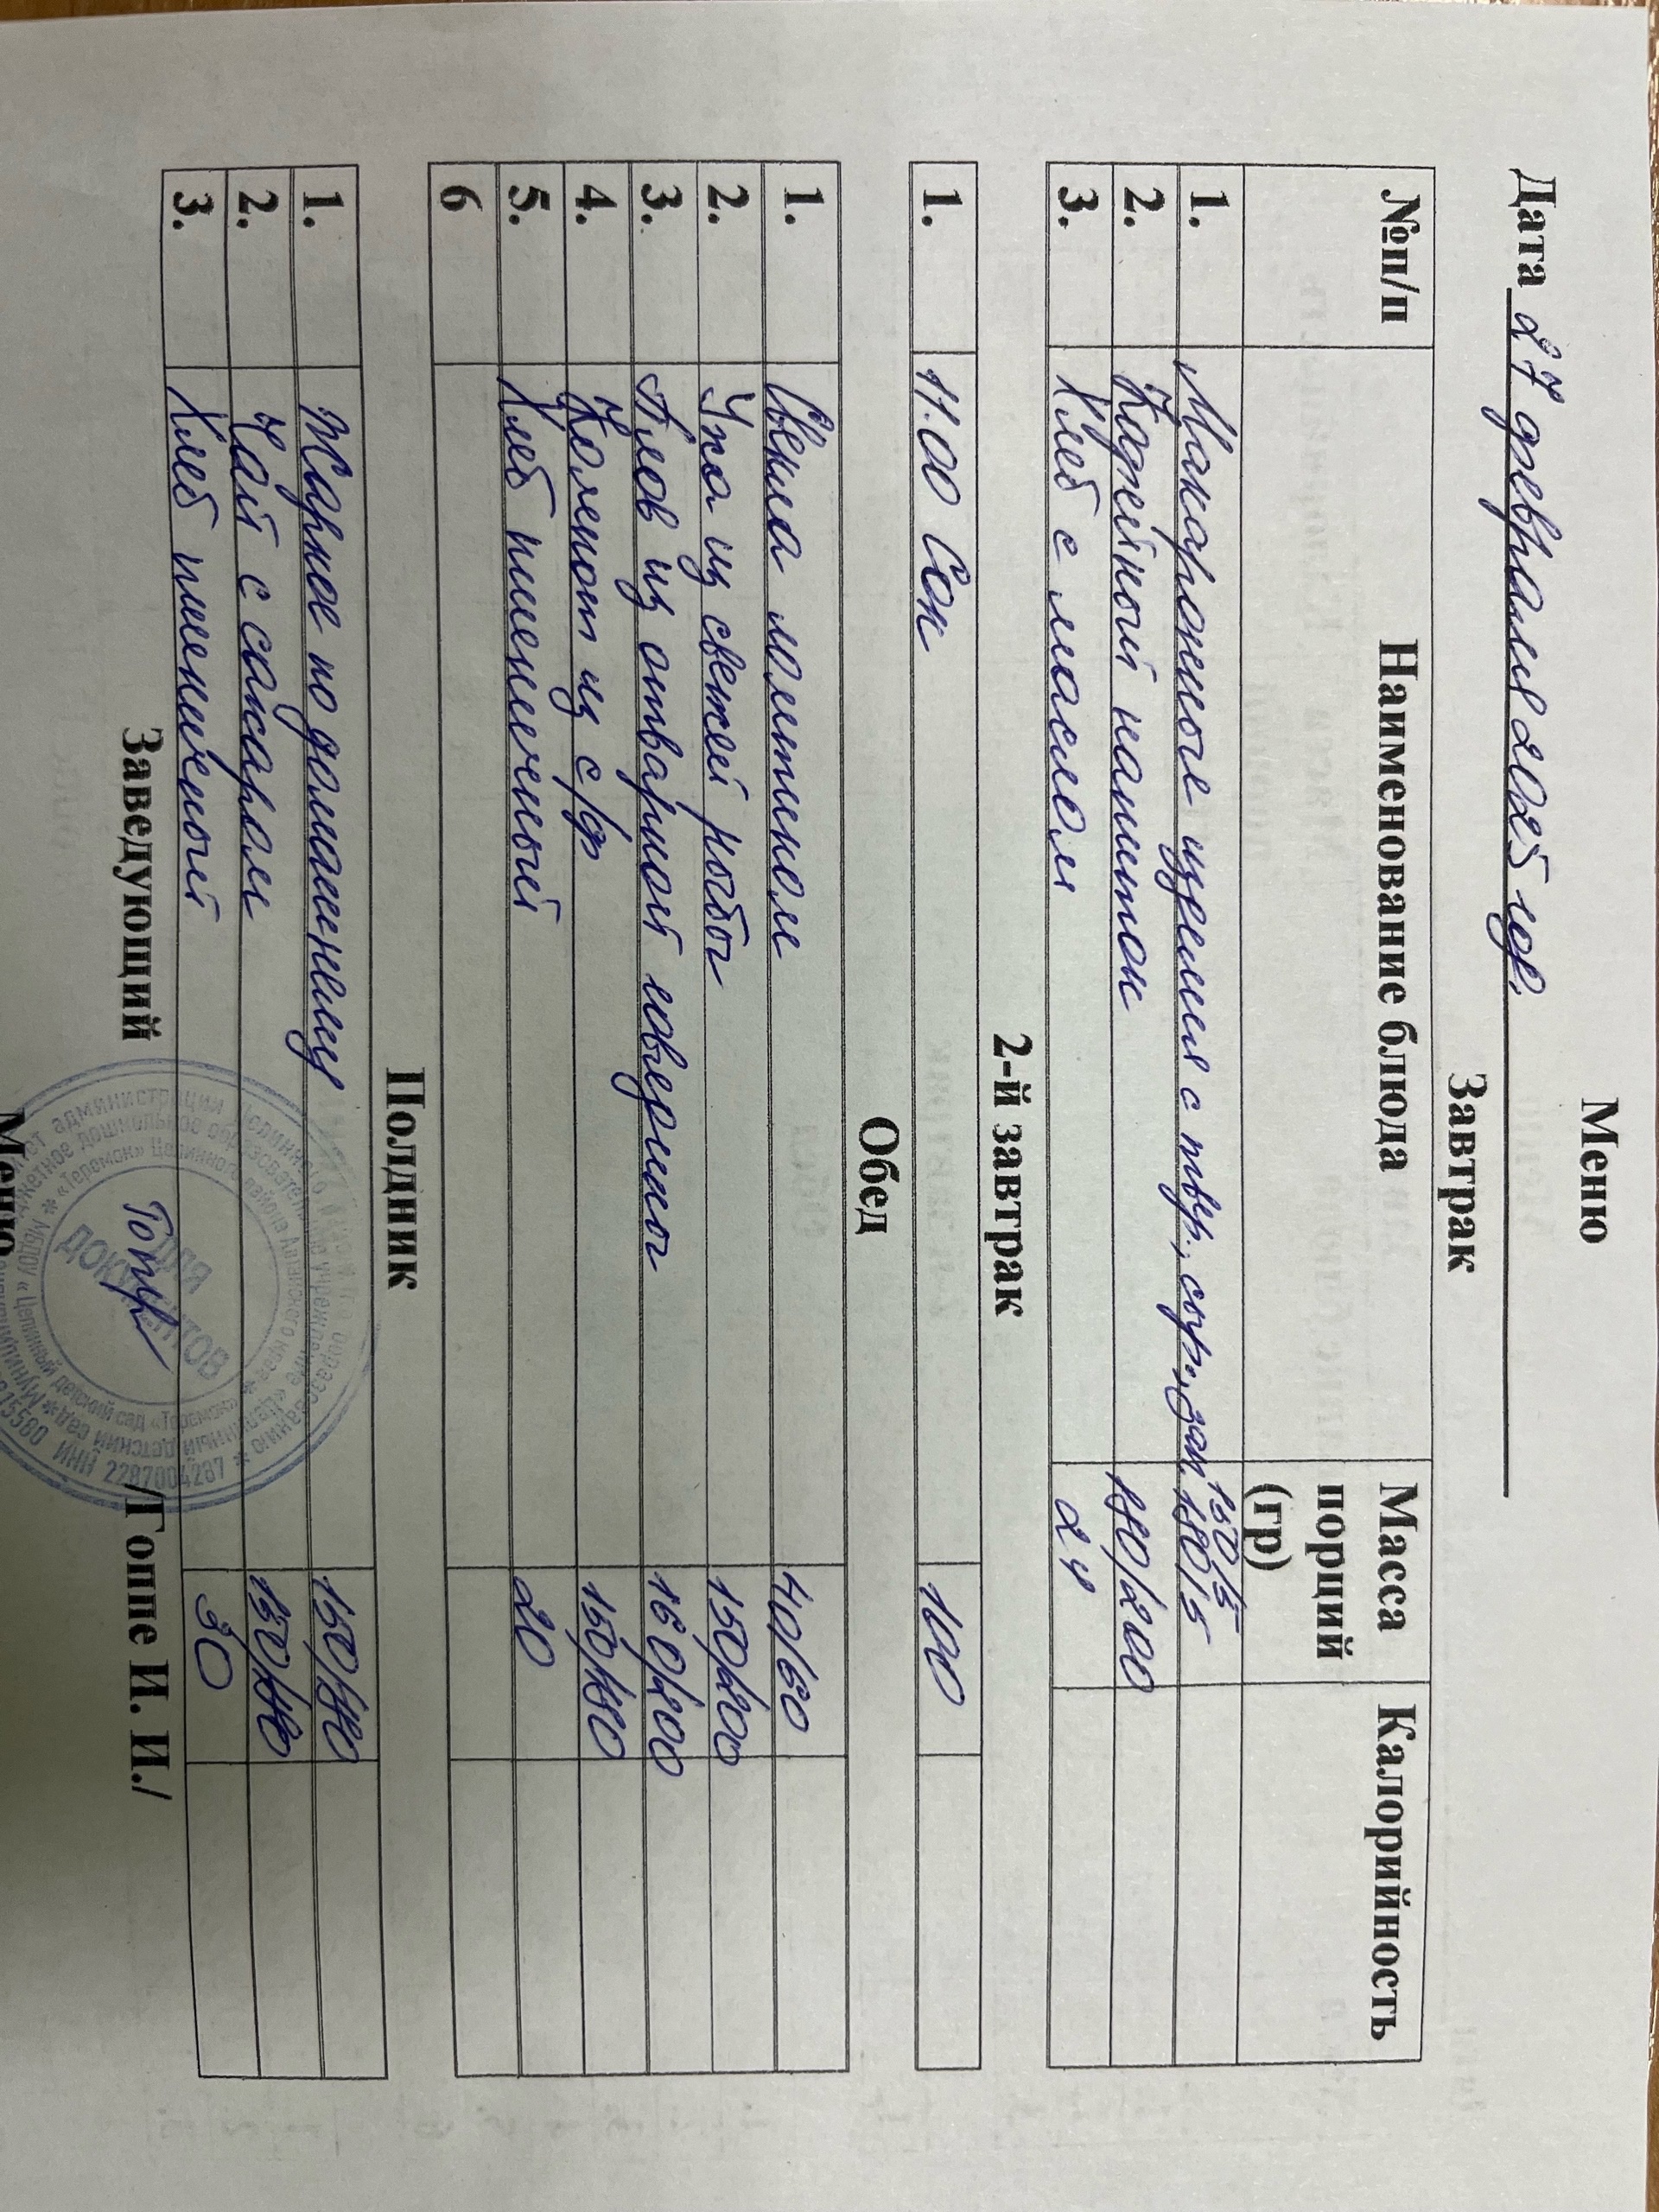 Меню
Дата 27 февраля 2025 год.
Завтрак
№п/п Наименование блюда Масса порций (гр) Калорийность
1. Макаронные изделия с твёр., сыр., зап. 130/5 180/5
2. Кофейный напиток 180/200
3. Хлеб с маслом 24
2-й завтрак
1. 11.00 Сок 100
Обед
1. Свекла ломтиком 40/60
2. Уха из свежей рыбы 150/200
3. Плов из отварной говядины 160/200
4. Компот из с/ф 150/180
5. Хлеб пшеничный 20
6
Полдник
1. Жаркое по домашнему 150/180
2. Чай с сахаром 150/180
3. Хлеб пшеничный 30
Заведующий /Гоппе И. И./
ДЛЯ ДОКУМЕНТОВ
ИНН 2287004237
Меню